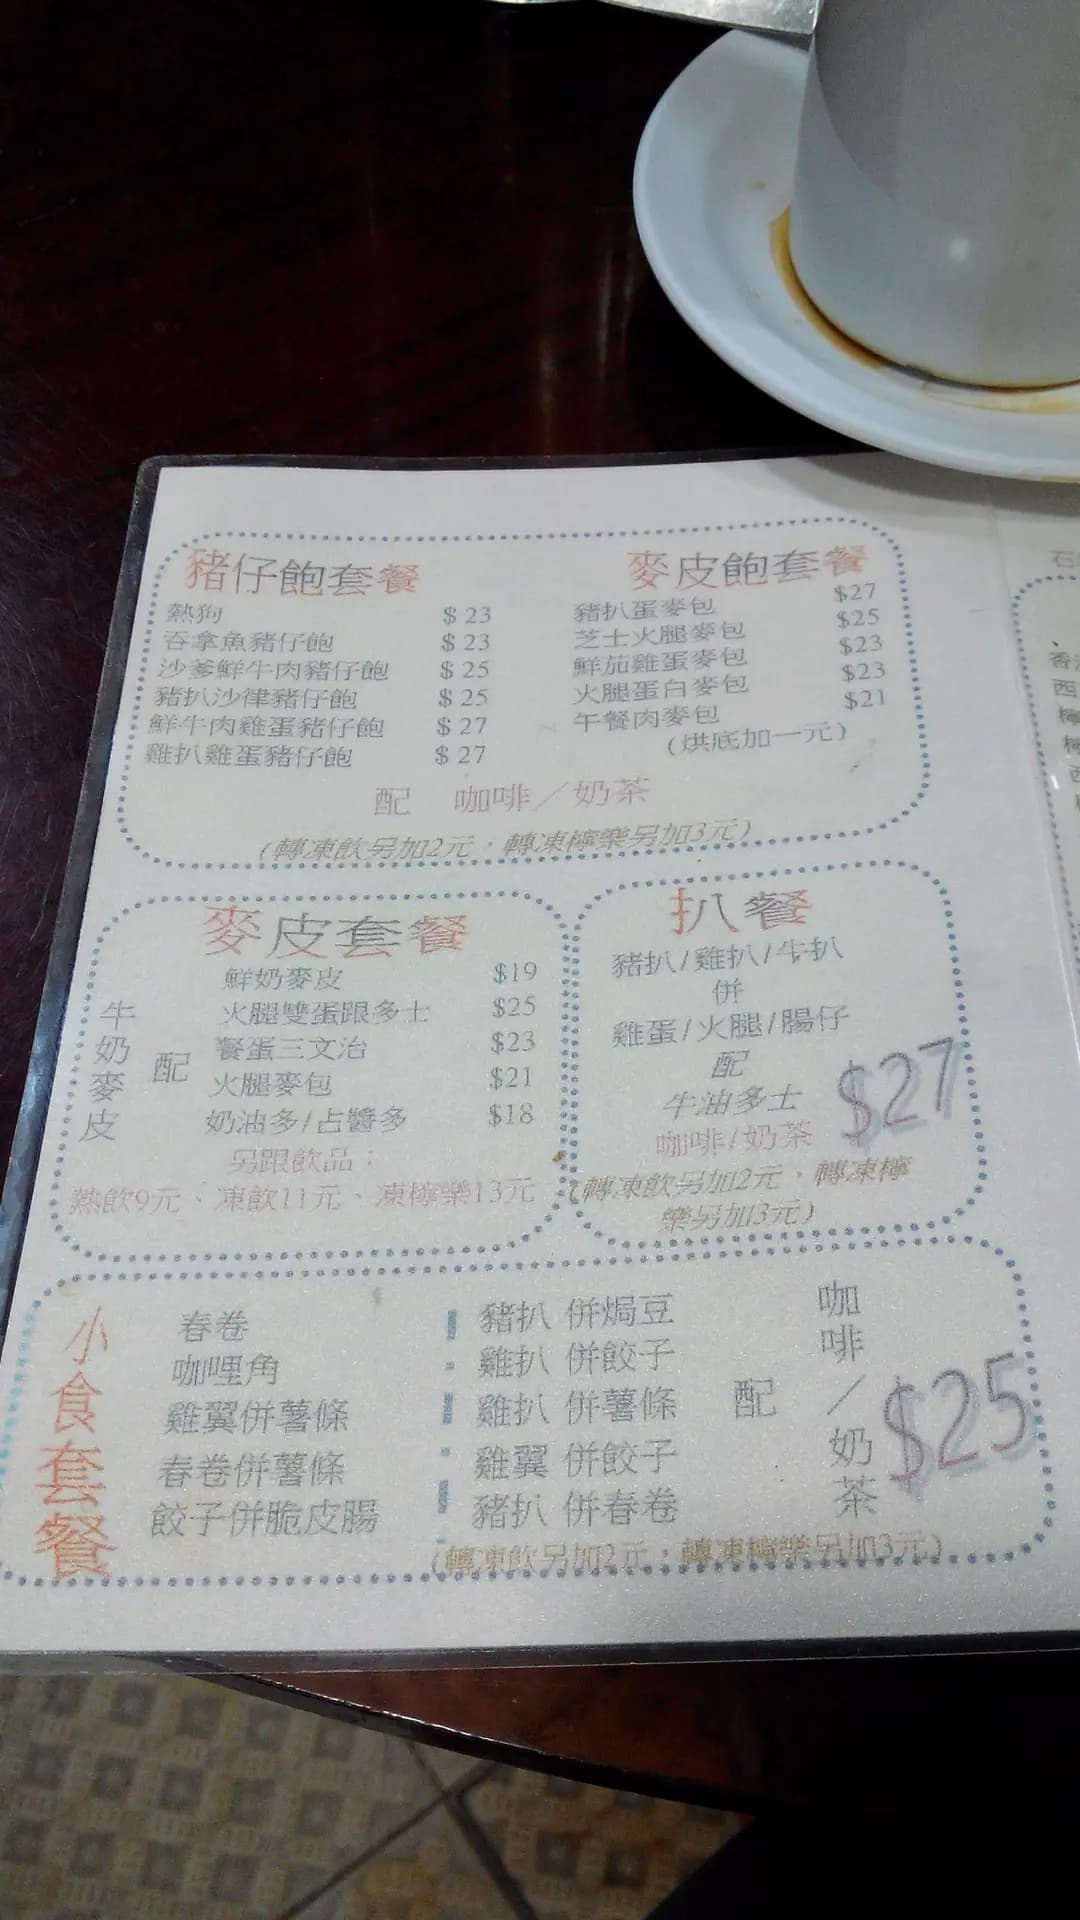 豬仔飽套餐
熱狗 $23
吞拿魚豬仔飽 $23
沙爹鮮牛肉豬仔飽 $25
豬扒沙律豬仔飽 $25
鮮牛肉雞蛋豬仔飽 $27
雞扒雞蛋豬仔飽 $27
麥皮飽套餐
豬扒蛋麥包 $27
芝士火腿麥包 $25
鮮茄雞蛋麥包 $23
火腿蛋白麥包 $23
午餐肉麥包 $21
(烘底加一元)
配 咖啡／奶茶
(轉凍飲另加2元，轉凍檸樂另加3元)
麥皮套餐
牛奶麥皮
配
鮮奶麥皮 $19
火腿雙蛋跟多士 $25
餐蛋三文治 $23
火腿麥包 $21
奶油多/占醬多 $18
另跟飲品：
熱飲9元、凍飲11元、凍檸樂13元
扒餐
豬扒/雞扒/牛扒
併
雞蛋/火腿/腸仔
配
牛油多士
咖啡/奶茶
$27
(轉凍飲另加2元，轉凍檸
樂另加3元)
小食套餐
春卷
咖哩角
雞翼併薯條
春卷併薯條
餃子併脆皮腸
豬扒 併焗豆
雞扒 併餃子
雞扒 併薯條
雞翼 併餃子
豬扒 併春卷
配
咖啡／奶茶
$25
(轉凍飲另加2元，轉凍檸樂另加3元)
石
香
西